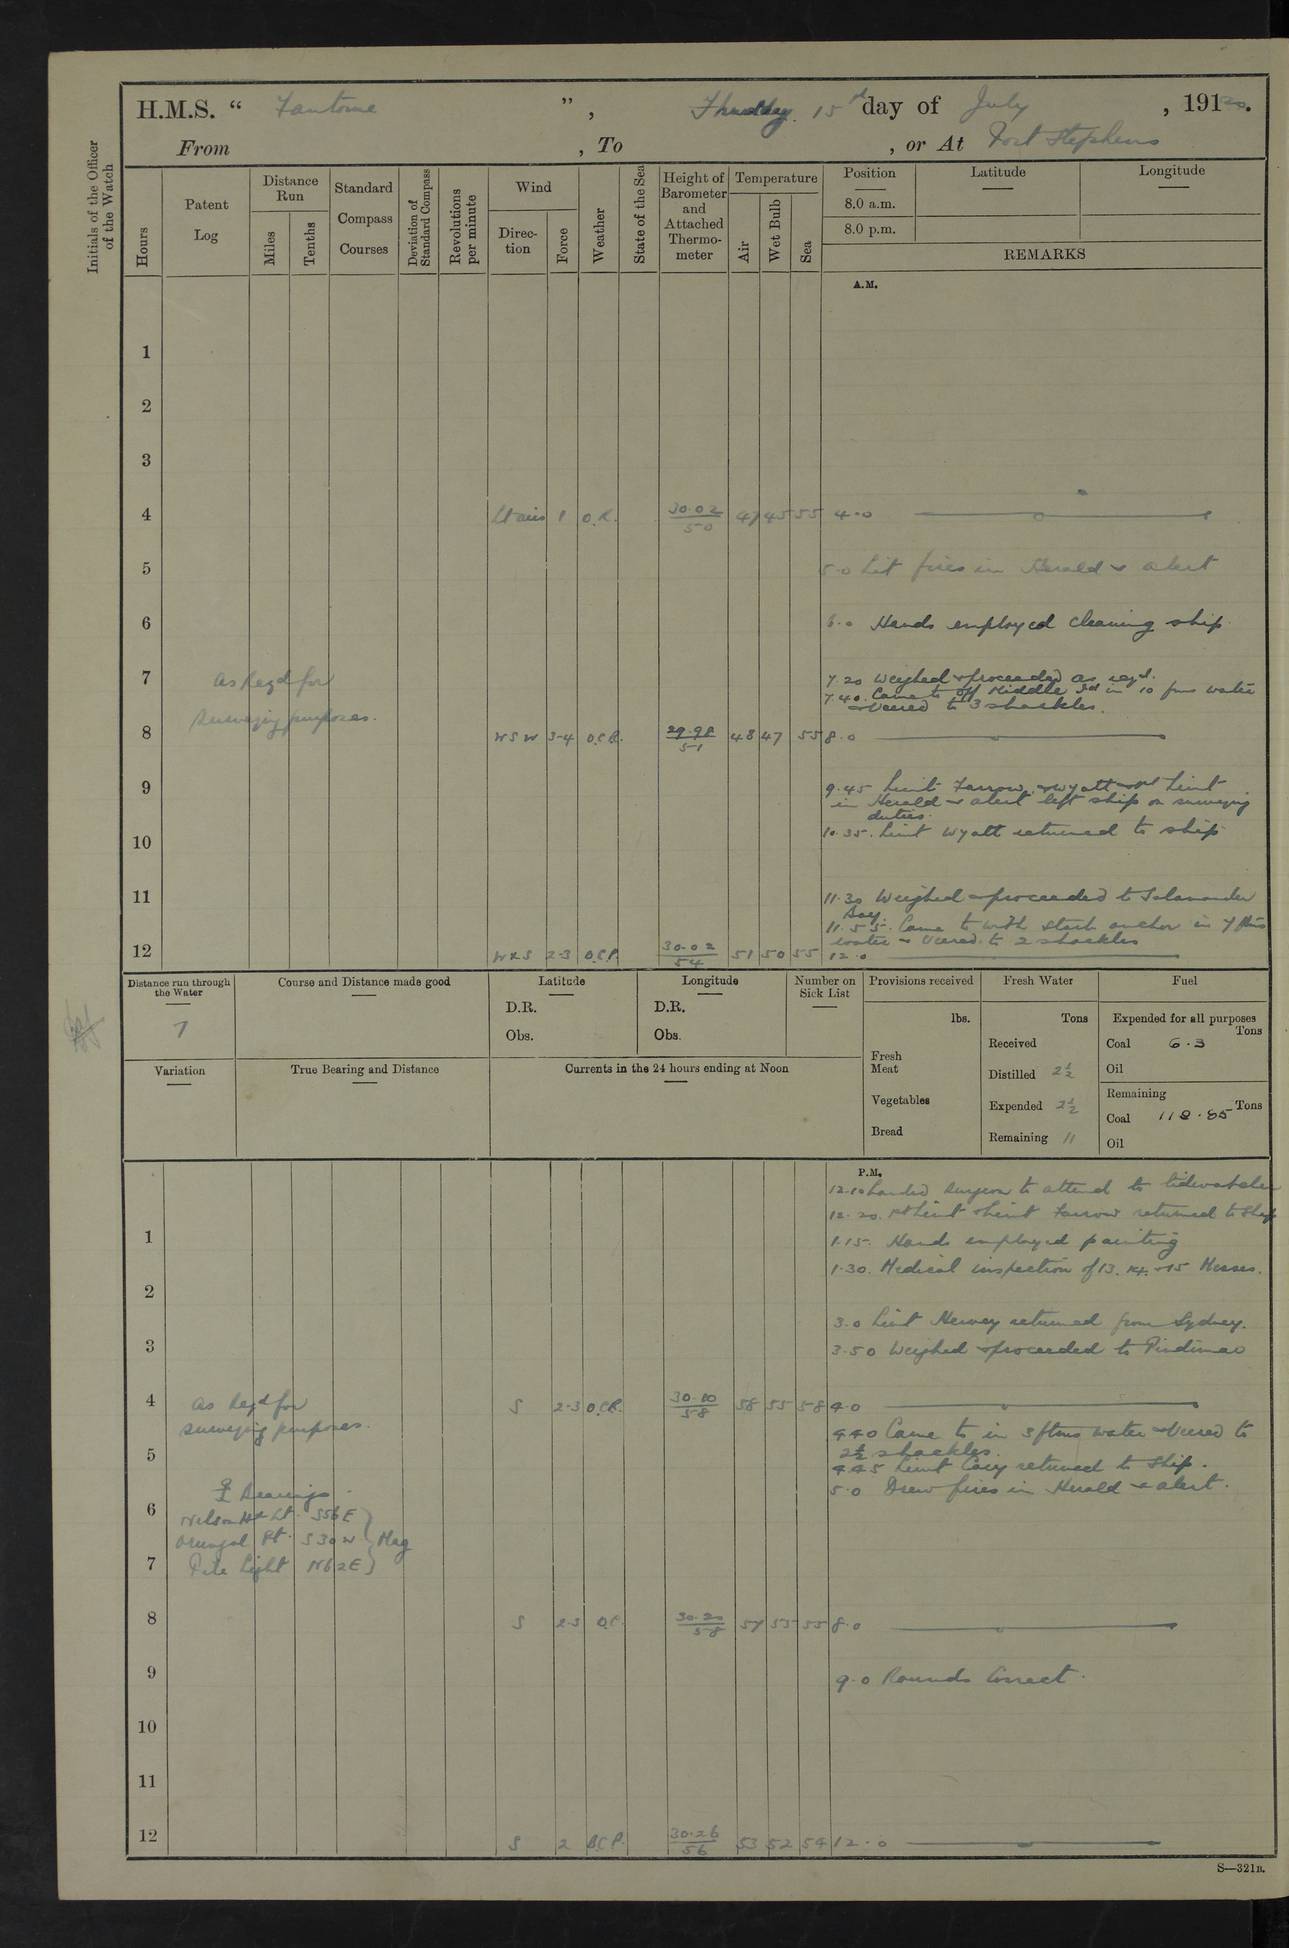 H.M.S. “ Fantome ”, Thursday 15th day of July, 1920.
From , To , or At Port Stephens
Initials of the Officer of the Watch
Hours
Patent Log
Distance Run
Miles
Tenths
Standard Compass Courses
Deviation of Standard Compass
Revolutions per minute
Wind
Direc-tion
Force
Weather
State of the Sea
Height of Barometer and Attached Thermo-meter
Temperature
Air
Wet Bulb
Sea
Position
8.0 a.m.
8.0 p.m.
Latitude
Longitude
REMARKS
A.M.
1
2
3
4 Lt airs 1 O.R. 30.02/50 47 45 55 4.0
5 5.0 Lit fires in Herald & Alert
6 6.0 Hands employed cleaning ship.
7 As Reqd for 7.20 Weighed & proceeded as reqd.
7.40. Came to off Middle Id in 10 fms water
& veered to 3 shackles.
surveying purposes.
8 WSW 3-4 O.C.R. 29.98/51 48 47 55 8.0
9 9.45 Lieut Farrow & Wyatt & 1st Lieut
in Herald & Alert left ship on surveying
duties.
10 10.35. Lieut Wyatt returned to ship
11 11.30 Weighed & proceeded to Salamander
Bay.
11.55. Came to with starb anchor in 7 fms
water & veered to 2 shackles
12 WxS 2-3 O.C.P. 30.02/54 51 50 55 12.0
Distance run through the Water
7
Course and Distance made good
Latitude
D.R.
Obs.
Longitude
D.R.
Obs.
Number on Sick List
Provisions received
lbs.
Fresh Meat
Vegetables
Bread
Fresh Water
Tons
Received
Distilled 2½
Expended 2½
Remaining 11
Fuel
Expended for all purposes
Tons
Coal 6.3
Oil
Remaining
Tons
Coal 118.85
Oil
Variation
True Bearing and Distance
Currents in the 24 hours ending at Noon
P.M.
12.10 Landed Surgeon to attend to tidewatcher
12.20. 1st Lieut & Lieut Farrow returned to Ship
1 1.15. Hands employed painting
1.30. Medical inspection of 13. 14. & 15 Messes.
2
3.0 Lieut Hervey returned from Sydney.
3 3.50 Weighed & proceeded to Pindimar
4 As Reqd for S 2-3 O.C.R. 30.10/58 58 55 58 4.0
surveying purposes.
4.40 Came to in 3 fms water & veered to
2½ shackles.
5 4.45 Lieut Cary returned to Ship.
5.0 Drew fires in Herald & Alert.
Bearings
6 Nelson Hd Lt. S56E
Orungal Pt. S30W } Mag
7 Pile Light N62E
8 S 2-3 O.C. 30.20/58 57 55 55 8.0
9 9.0 Rounds Correct.
10
11
12 S 2 B.C.P. 30.26/56 53 52 54 12.0
S—321B.